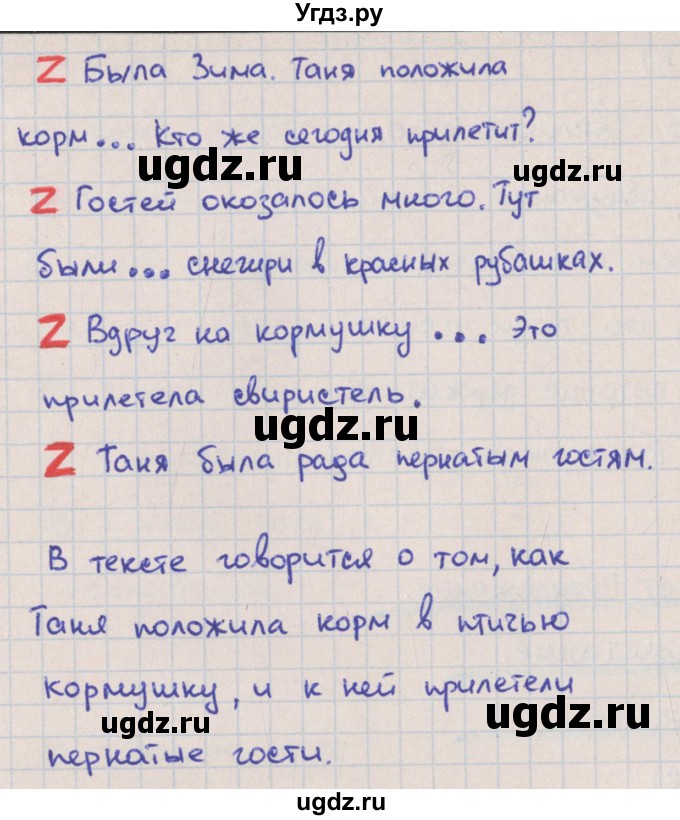 Угдз.ру
Z Была Зима. Таня положила
корм... Кто же сегодня прилетит?
ugdz.ru
Z Гостей окозалось много. Тут
были... снегири в красных рубашках.
ugdz.ru
Z Вдруг на кормушку ... Это
прилетела свиристель.
ugdz.ru
Z Таня была рада пернатым гостям.
В тексте говорится о том, как
Таня положила корм в птичью
кормушку, и к ней прилетели
ugdz.ru
ugdz.ru
пернатые гости.
ugdz.ru